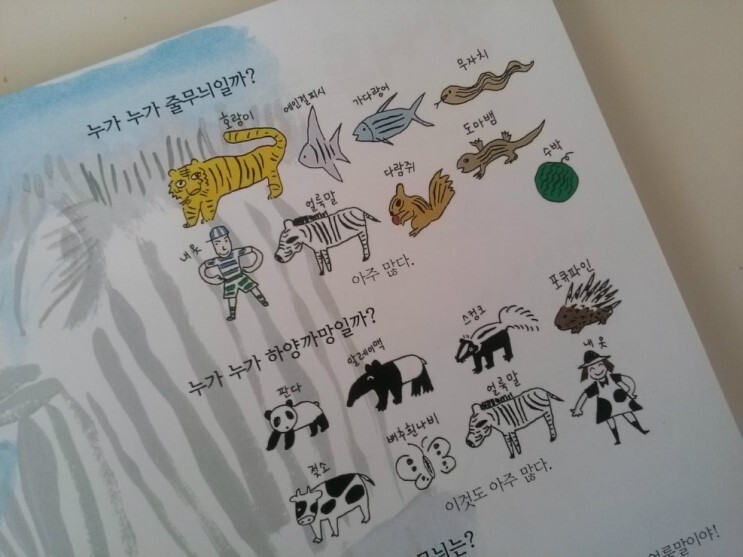 누가 누가 줄무늬일까?
호랑이
에인절피시
가다랑어
무자치
내 옷
얼룩말
다람쥐
도마뱀
수박
아주 많다.
누가 누가 하양까망일까?
판다
말레이맥
스컹크
포큐파인
젖소
배추흰나비
얼룩말
내 옷
이것도 아주 많다.
무늬는?
얼룩말이야!